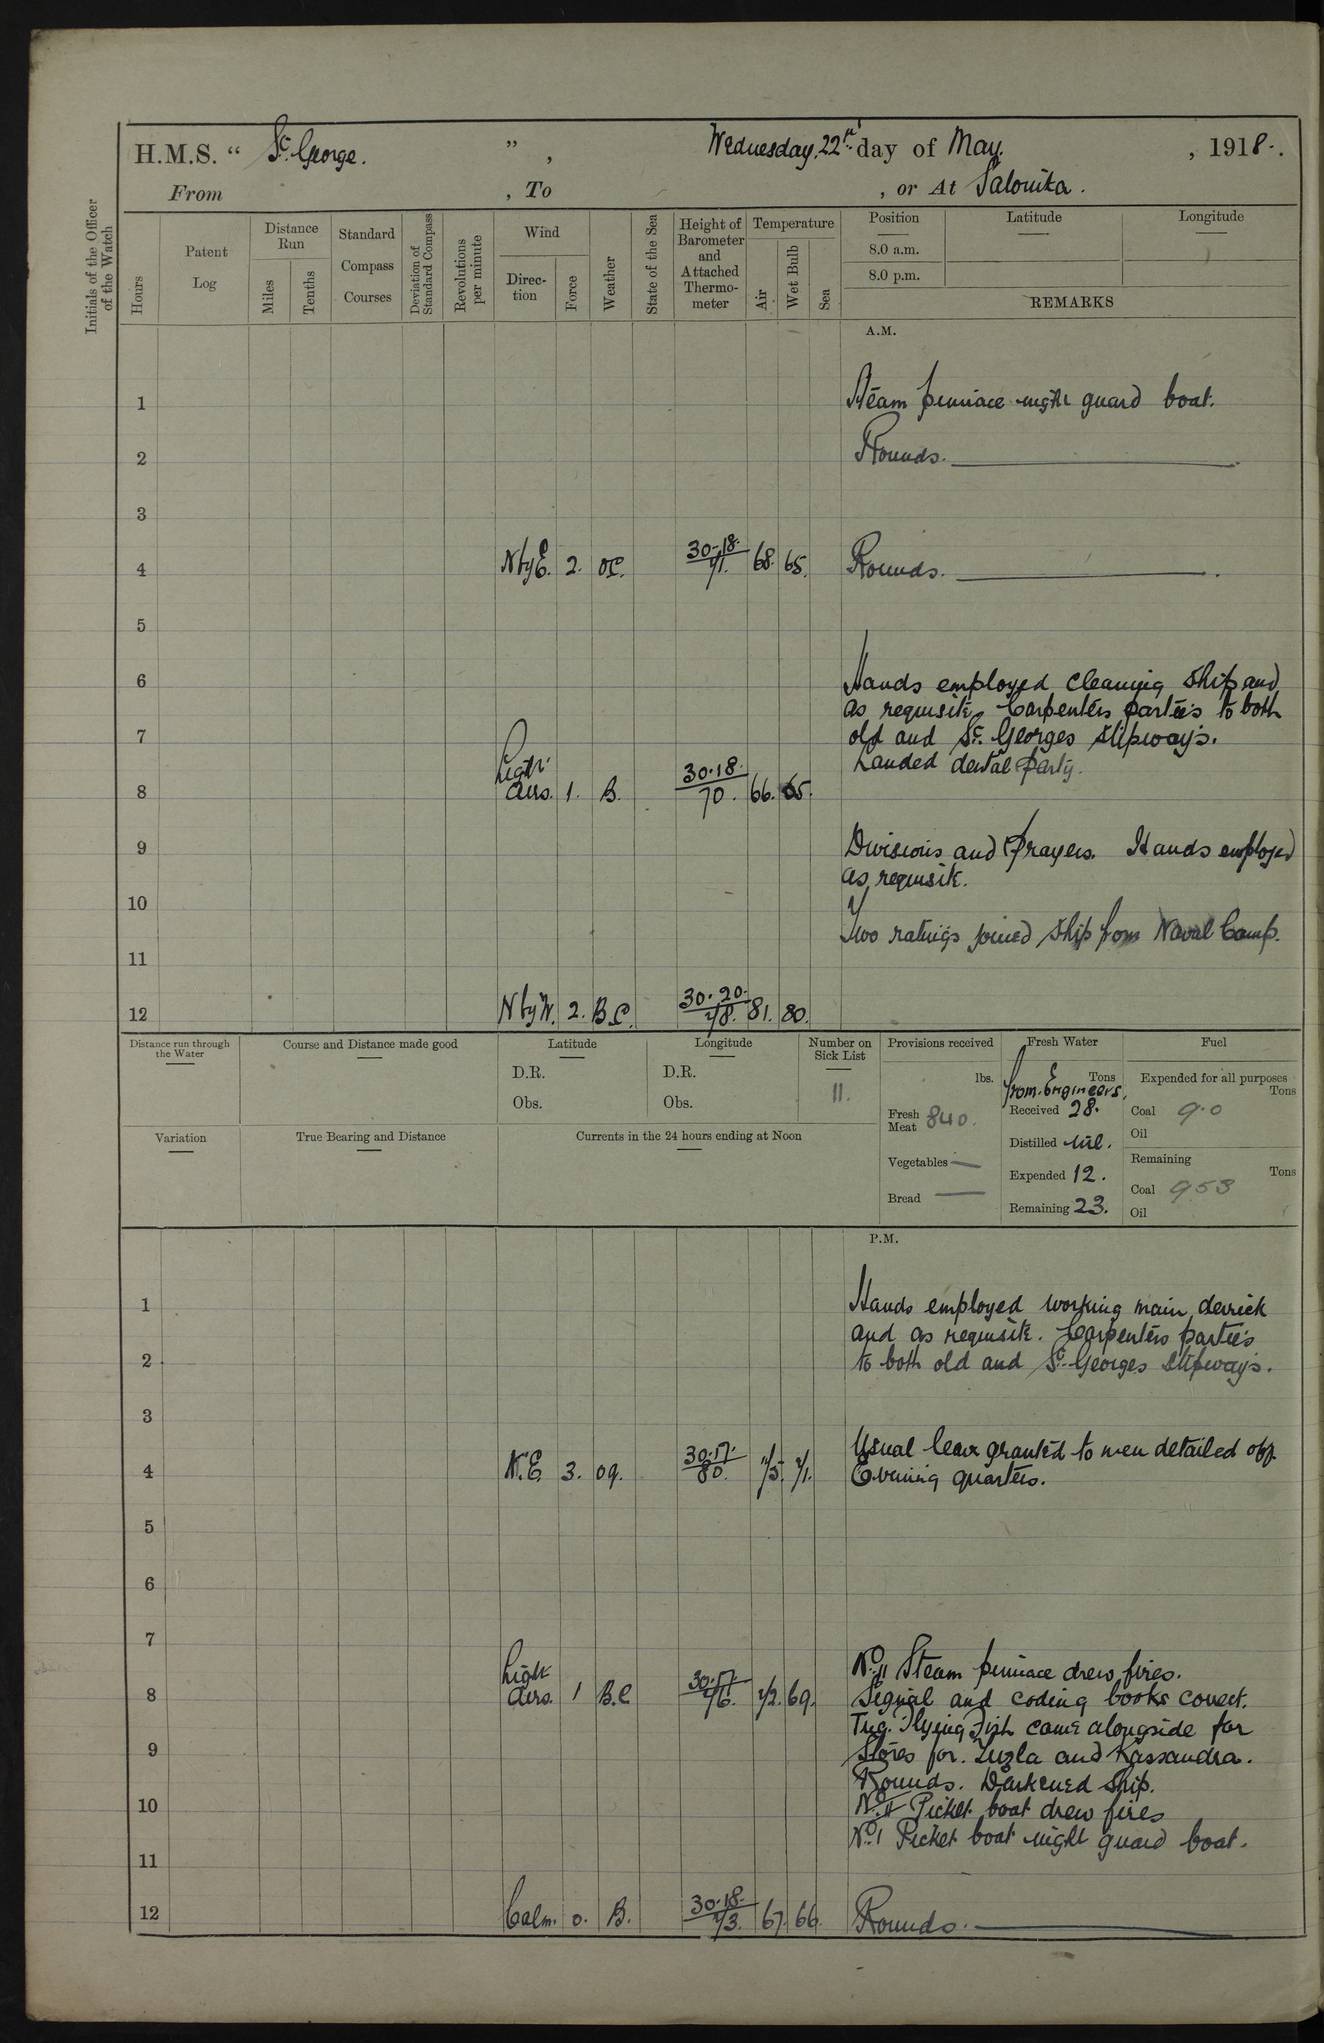 H.M.S. “ St. George. ” , Wednesday, 22nd day of May , 1918.
From , To , or At Salonika.
Initials of the Officer of the Watch
Hours
Patent Log
Distance Run
Miles
Tenths
Standard Compass Courses
Deviation of Standard Compass
Revolutions per minute
Wind
Direc-tion
Force
Weather
State of the Sea
Height of Barometer and Attached Thermo-meter
Temperature
Air
Wet Bulb
Sea
Position Latitude Longitude
8.0 a.m.
8.0 p.m.
REMARKS
A.M.
1 Steam pinnace night guard boat.
2 Rounds.
3
4 N by E. 2. OC. 30.18. 71. 68. 65. Rounds.
5
6 Hands employed cleaning ship and
as requisite, Carpenters parties to both
7 old and St. Georges slipways.
Landed dental party.
8 Light airs. 1. B. 30.18. 70. 66. 65.
9 Divisions and Prayers. Hands employed
as requisite.
10
Two ratings joined ship from Naval Camp.
11
12 N by W. 2. B.C. 30.20. 78. 81. 80.
Distance run through the Water
Course and Distance made good
Latitude
D.R.
Obs.
Longitude
D.R.
Obs.
Number on Sick List
11.
Provisions received
lbs.
Fresh Meat 840.
Vegetables —
Bread —
Fresh Water
Tons
from Engineers.
Received 28.
Distilled Nil.
Expended 12.
Remaining 23.
Fuel
Expended for all purposes
Tons
Coal 90
Oil
Remaining
Tons
Coal 953
Oil
Variation
True Bearing and Distance
Currents in the 24 hours ending at Noon
P.M.
1 Hands employed working main derrick
and as requisite. Carpenters parties
2 to both old and St. Georges slipways.
3
Usual leave granted to men detailed off.
4 N.E. 3. og. 30.17. 80. 75. 71. Evening quarters.
5
6
7
No. 11 Steam pinnace drew fires.
8 Light airs. 1 B.C 30.17. 76. 72. 69. Signal and coding books correct.
Tug. Flying Fish came alongside for
9 Stores for. Tuzla and Kassandra.
Rounds. Darkened ship.
10 No. 11 Picket boat drew fires
No. 1 Picket boat night guard boat.
11
12 Calm. 0. B. 30.18. 73. 67. 66. Rounds.